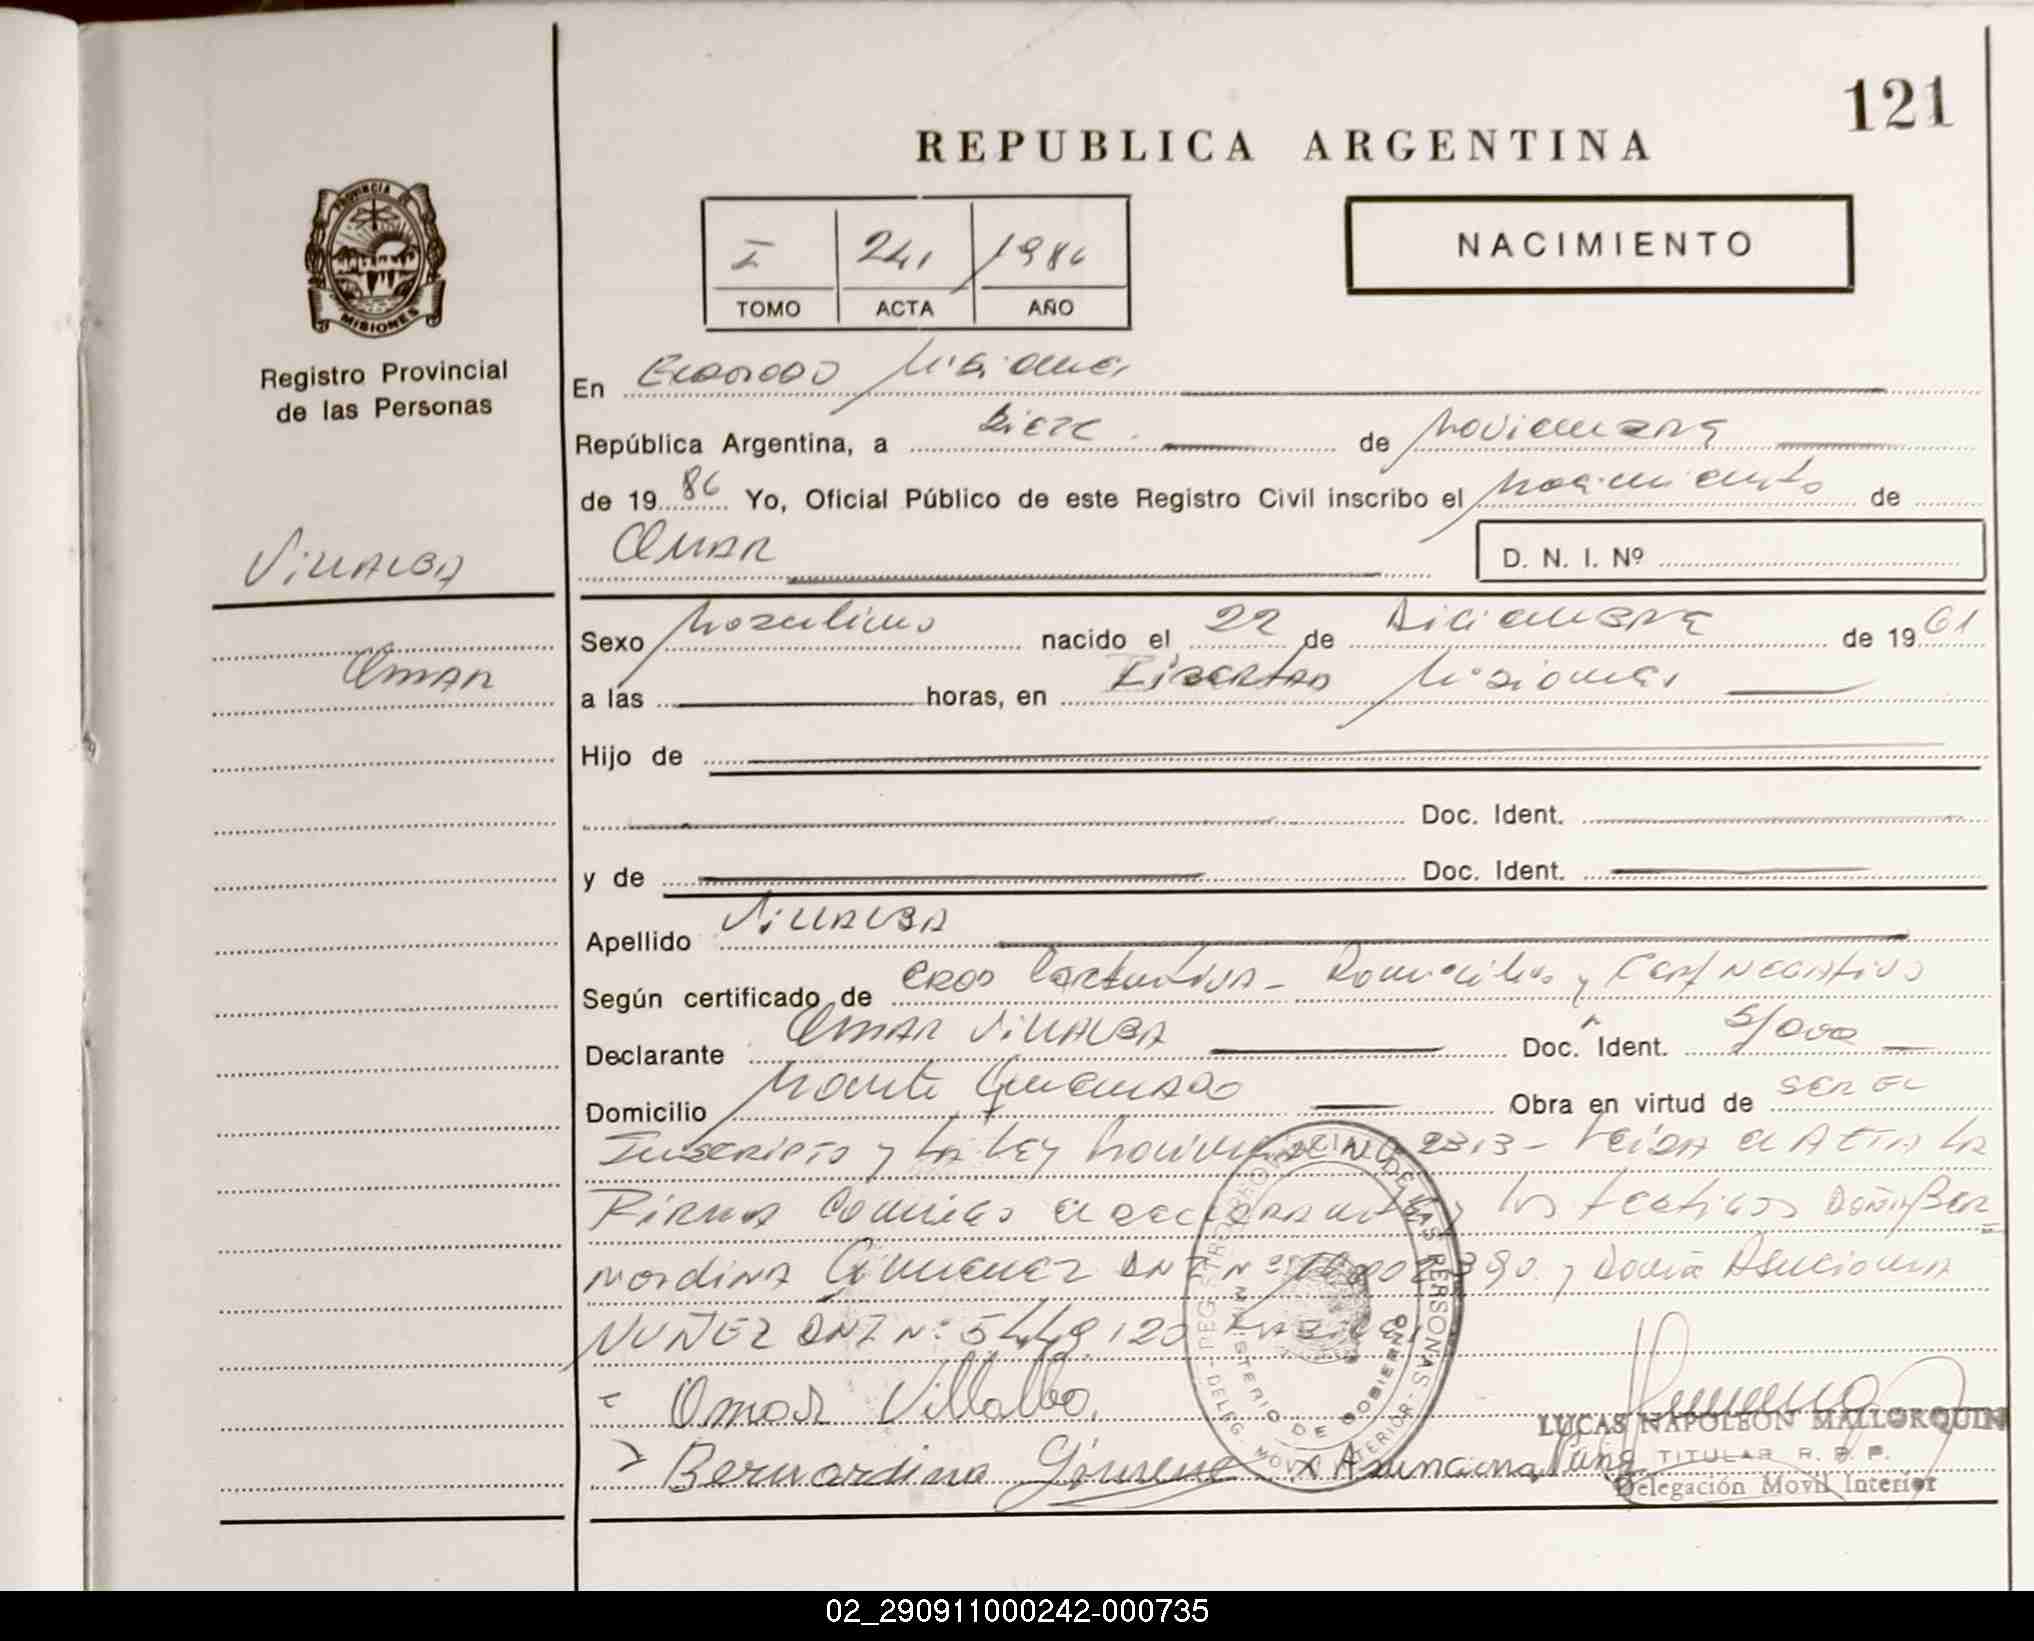 121
REPUBLICA ARGENTINA
PROVINCIA DE
MISIONES
Registro Provincial
de las Personas
I 241 1986
TOMO ACTA AÑO
NACIMIENTO
En Eldorado Misiones
República Argentina, a Diez de Noviembre
de 1986 Yo, Oficial Público de este Registro Civil inscribo el Nacimiento de
OMAR
D. N. I. Nº
VILLALBA
OMAR
Sexo Masculino nacido el 22 de Diciembre de 1961
a las horas, en Libertad Misiones
Hijo de
Doc. Ident.
y de Doc. Ident.
Apellido VILLALBA
Según certificado de Domicilio y Cert Negativo
Declarante OMAR VILLALBA Doc. Ident. S/
Domicilio Monte Quemado Obra en virtud de SER EL
Inscripto y la Ley 2313 - Leida el Acta la
Firma Conmigo el declarante y los testigos Doña Ber=
nardina Gimenez DNI Nº y Doña Asunciona
NUÑEZ DNI Nº 5.449.120
Omar Villalba
Bernardina Gimene x Asunciona Nuñe
REGISTRO PROVINCIAL DE LAS PERSONAS - DELEG. MOVIL INTERIOR -
MINISTERIO DE GOBIERNO
LUCAS NAPOLEON MALLORQUIN
TITULAR R. P. P.
Delegación Movil Interior
02_290911000242-000735